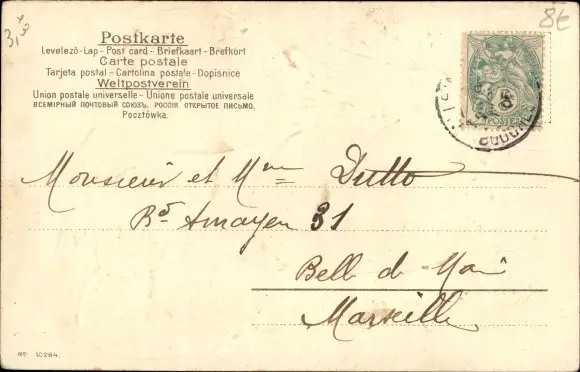 3,50
8€
Postkarte
Levelező-Lap - Post card - Briefkaart - Brefkort
Carte postale
Tarjeta postal - Cartolina postale - Dopisnice
Weltpostverein
Union postale universelle - Unione postale universale
ВСЕМІРНЫЙ ПОЧТОВЫЙ СОЮЗЪ. РОССІЯ. ОТКРЫТОЕ ПИСЬМО.
Pocztówka.
POSTES
Monsieur et Mme Dutto
Bd Amayen 31
Bell de Mai
Marseille
No. 10264.